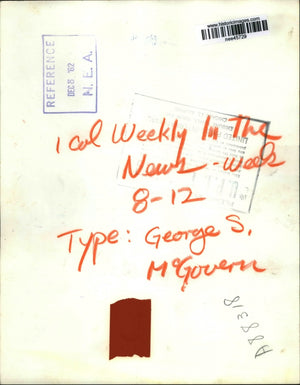 www.historicimages.com
nee45729
REFERENCE
DEC 8 '62
N.E.A.
1 col Weekly In The
News - Week
8-12
Type: George S.
McGovern